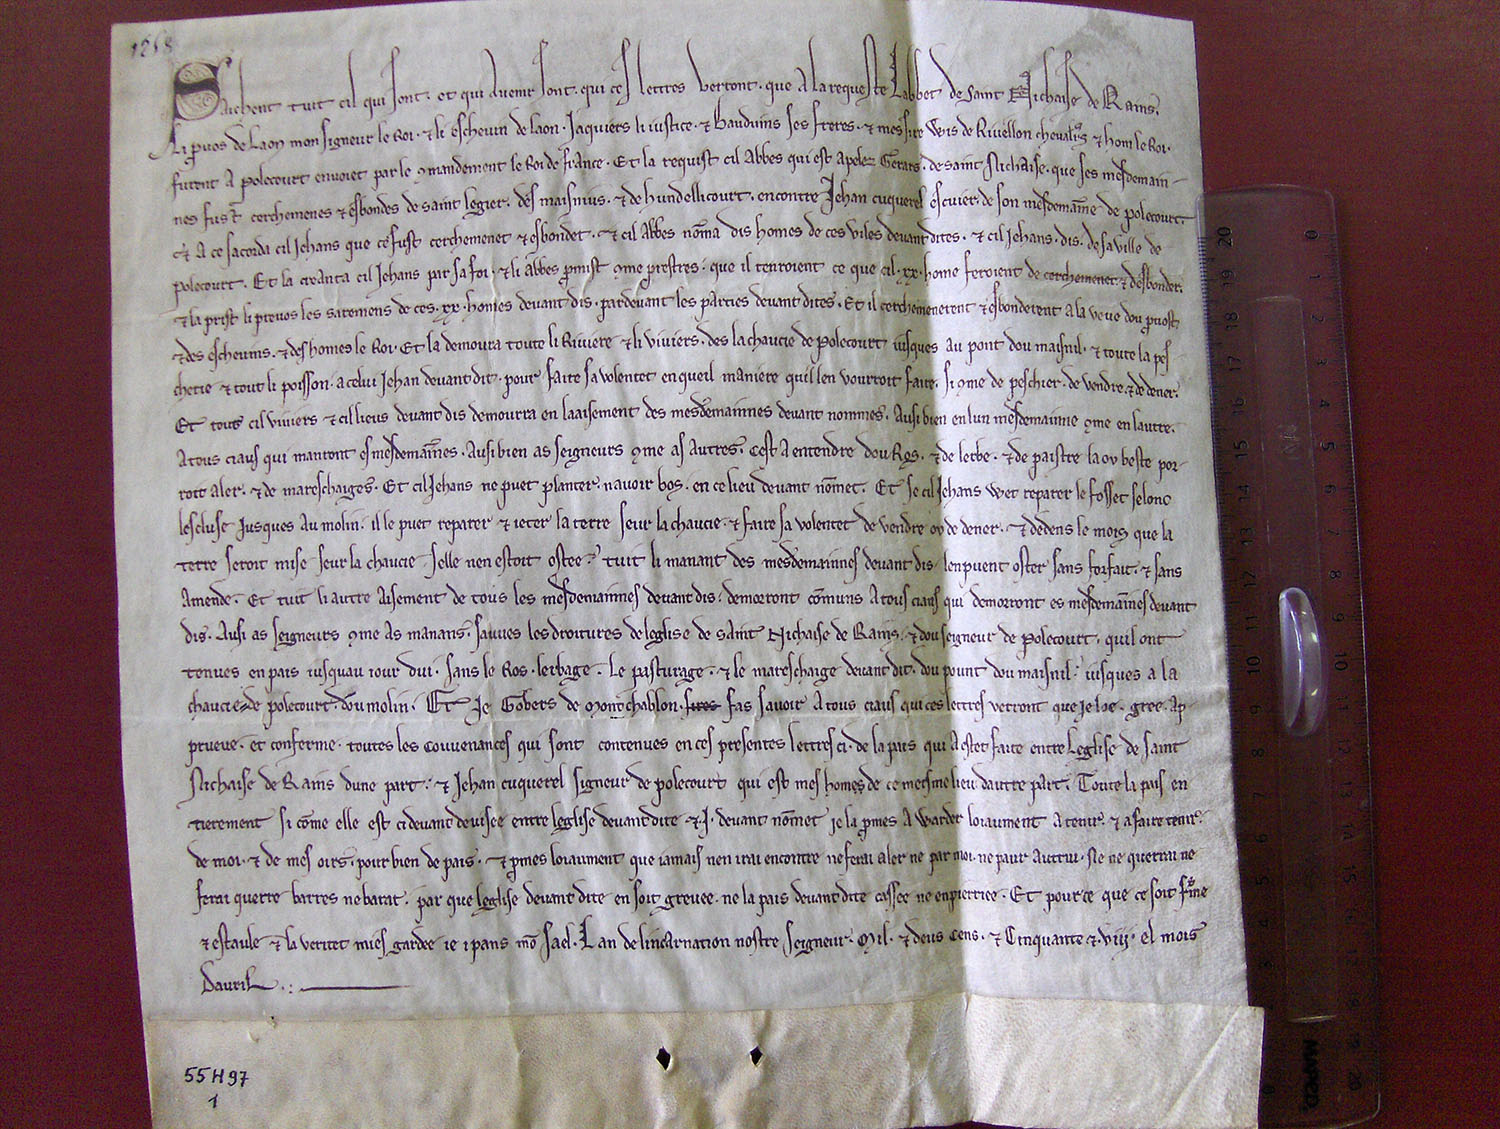 1258
Sachent tuit cil qui sont. et qui avenir sont. qui ces lettres verront. que a la requeste labbet de saint Nichaise de Rains.
Li p'vos de Laon mon signeur le Roi. & li eschevin de laon. Jaquiers li iustice. & Bauduins ses freres. & messire Wis de Rivellon chevaliers & hom le Roi.
furent a polecourt envoiet par le 9mandement le Roi de france. Et la requist cil Abbes qui est apelez Gerars. de saint Nichaise. que ses mesdemain-
nes fust cerchemenes & esbondes de saint legier. des maisnius. & de hundellicourt. encontre Jehan cuquerel escuier. de son mesdemaine de polecourt.
& A ce sacorda cil Jehans que ce fust cerchemenet & esbondet. & cil abbes noma dis homes de ces viles devant dites. & cil Jehans. dis. de sa ville de
polecourt. Et la creanta cil Jehans par sa foi. & li abbes pmist 9me prestres. que il tenroient ce que cil. xx. home feroient de cerchemener. & desbonder.
& la prist li prevos les saremens de ces. xx. homes devant dis. pardevant les parties devant dites. Et il cerchemenerent & esbonderent a la veue dou pvost
& des eschevins. & des homes le Roi. Et la demoura toute li Riviere & li viviers. des la chaucie de polecourt iusques au pont dou maisnil. & toute la pes-
cherie & tout li poisson. a celui Jehan devant dit. pour faire sa volentet en queil maniere quil len vourroit faire. si 9me de peschier. de vendre. & de dener.
Et tous cil viviers & cil lieus devant dis demourra en laaisement des mesdemainnes devant nommes. Ausi bien en lun mesdemainne 9me en lautre.
A tous ciaus qui manront es mesdemainnes. Ausi bien as seigneurs 9me as autres. Cest a entendre dou Ros. & de lerbe. & de paistre la ou beste por-
roit aler. & de mareschaiges. Et cil Jehans ne puet planter. navoir bos. en ce lieu devant nomet. Et se cil Jehans wet reparer le fosset selonc
lescluse jusques au molin. il le puet reparer & ieter la terre seur la chaucie. & faire sa volentet de vendre ou de dener. & dedens le mois que la
terre seroit mise seur la chaucie. selle nen estoit ostee. tuit li manant des mesdemainnes devant dis. lenpuent oster sans forfait. & sans
amende. Et tuit li autre aisement de tous les mesdemainnes devant dis. demorront comuns a tous ciaus qui demorront es mesdemaines devant
dis. Ausi as seigneurs 9me as manans. sauves les droitures de leglise de saint Nichaise de Rains. & dou seigneur de polecourt. quil ont
tenues en pais iusquau iour dui. sans le Ros. lerbage. Le pasturage. & le mareschaige devant dit. dou pount dou maisnil. iusques a la
chaucie de polecourt. dou molin. Et Je Gobers de Montchablon. fas savoir a tous ciaus qui ces lettres verront que je loe. gree. ap-
prueve. et conferme. toutes les couvenances qui sont contenues en ces presentes lettres ci. de la pais qui a estet faite entre leglise de saint
Nichaise de Rains dune part. & Jehan cuquerel signeur de polecourt qui est mes homes de ce meisme lieu dautre part. Toute la pais en
tierement si come elle est ci devant devisee entre leglise devant dite & .J. devant nomet je la pmes a warder loiaument a tenir. & a faire tenir.
de moi. & de mes oirs. pour bien de pais. & pmes loiaument que iamais nen irai encontre ne ferai aler ne par moi. ne paur autrui. Ne ne querrai ne
ferai querre barres ne barat. par que leglise devant dite en soit grevee. ne la pais devant dite cassee ne enpiertiee. Et pour ce que ce soit ferme
& estaule & la veritet mies gardee ie i pans mo sael. Lan de lincarnation nostre seigneur. Mil. & deus cens. & Cinquante & .viij. el mois
Davril.
55 H 97
1
MAPED